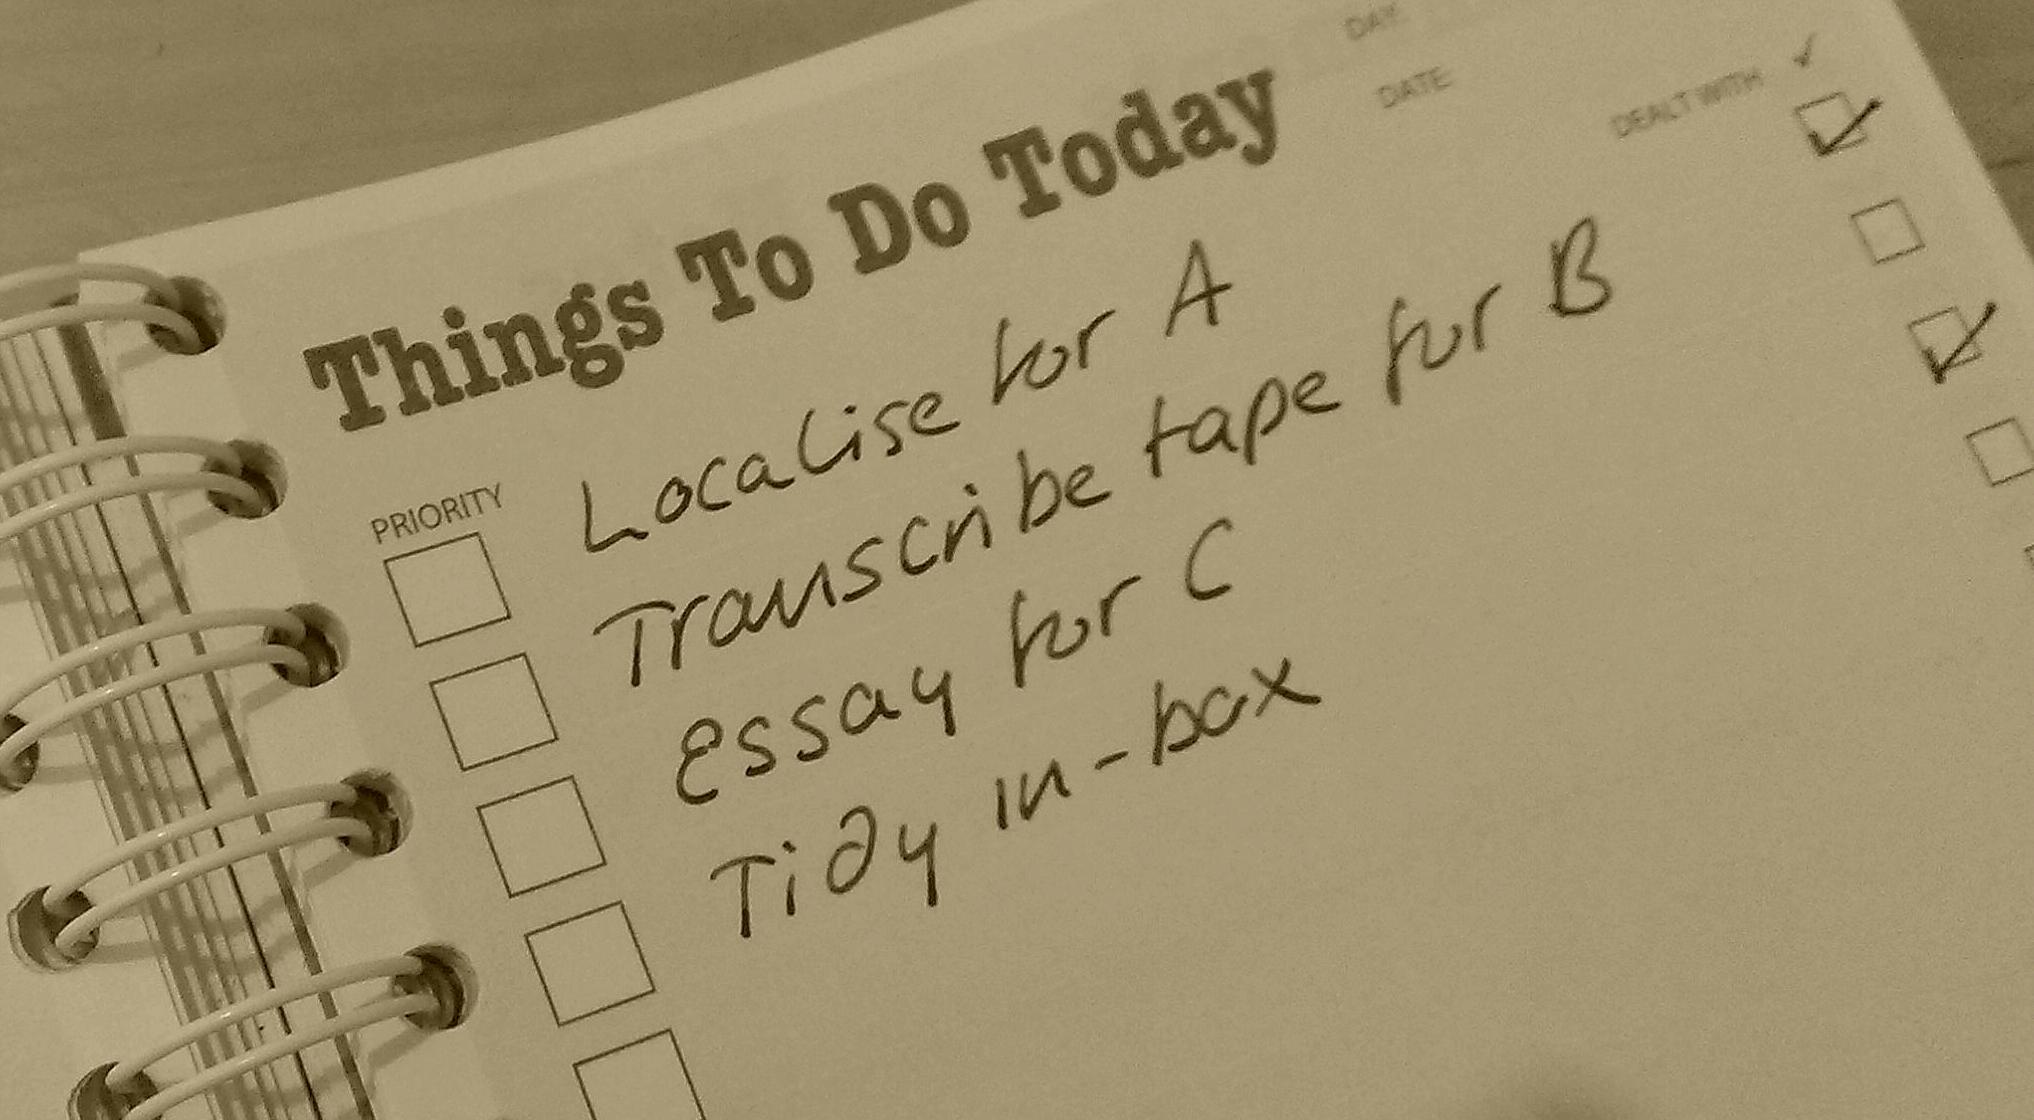 DAY:
DATE:
Things To Do Today
DEALT WITH ✓
PRIORITY
Localise for A
Transcribe tape for B
Essay for C
Tidy in-box